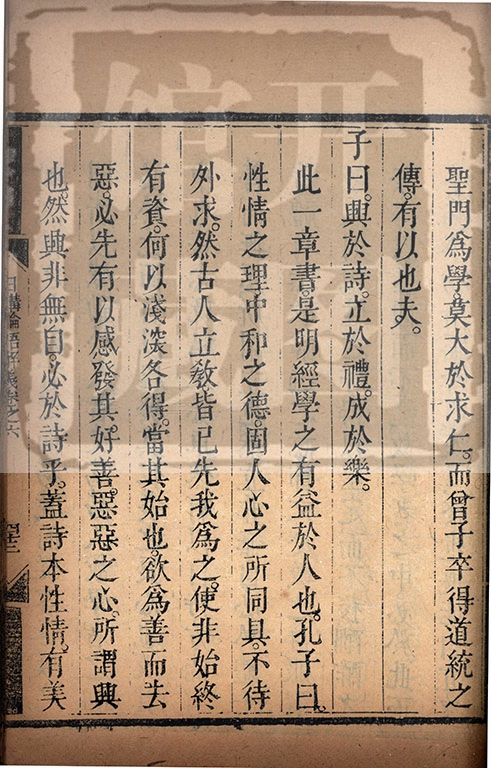 聖門為學莫大於求仁。而曾子卒得道統之
傳。有以也夫。
子曰。興於詩。立於禮。成於樂。
此一章書是明經學之有益於人也。孔子曰。
性情之理中和之德。固人心之所同具。不待
外求。然古人立教皆已先我為之。使非始終
有資。何以淺深各得。當其始也。欲為善而去
惡。必先有以感發其。好善。惡惡之心。所謂興
也。然興非無自。必於詩乎。蓋詩本性情。有美
日講論語解義卷之六